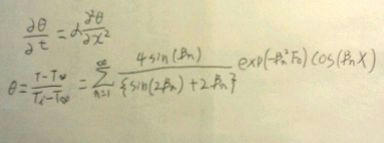 ∂θ/∂t = α ∂²θ/∂x²
θ = (T-T∞)/(Ti-T∞) = ∑_{n=1}^{∞} 4 sin(βn)/{sin(2βn)+2βn} exp(-βn² Fo) cos(βn X)